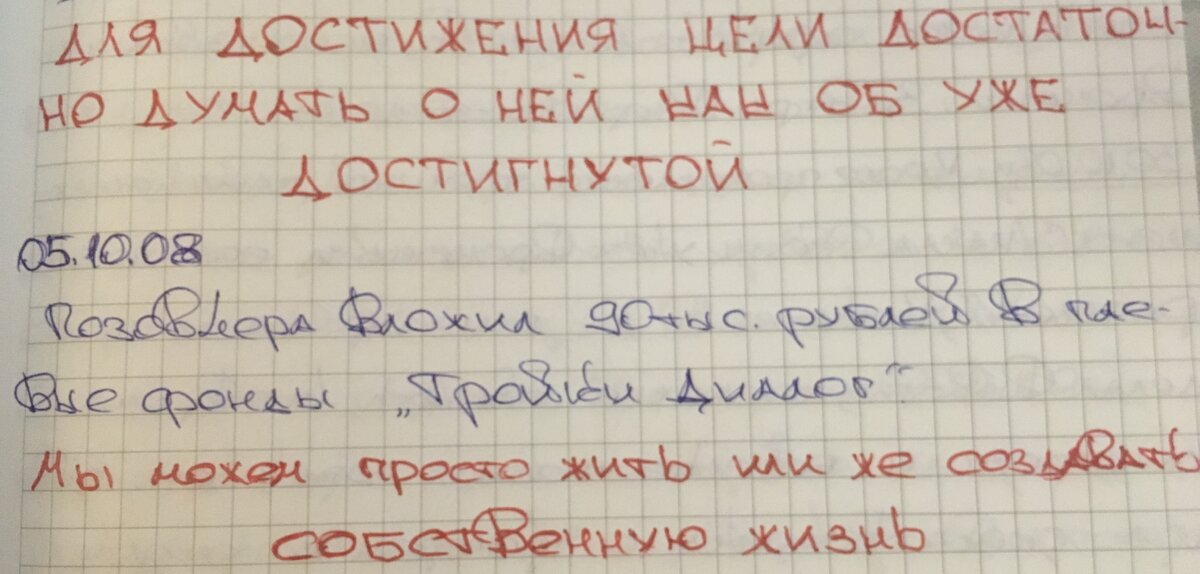 ДЛЯ ДОСТИЖЕНИЯ ЦЕЛИ ДОСТАТОЧ-
НО ДУМАТЬ О НЕЙ КАК ОБ УЖЕ
ДОСТИГНУТОЙ
05.10.08
Позавчера вложил 90 тыс. рублей в пае-
вые фонды „Тройки Диалог"
Мы можем просто жить или же создавать
собственную жизнь